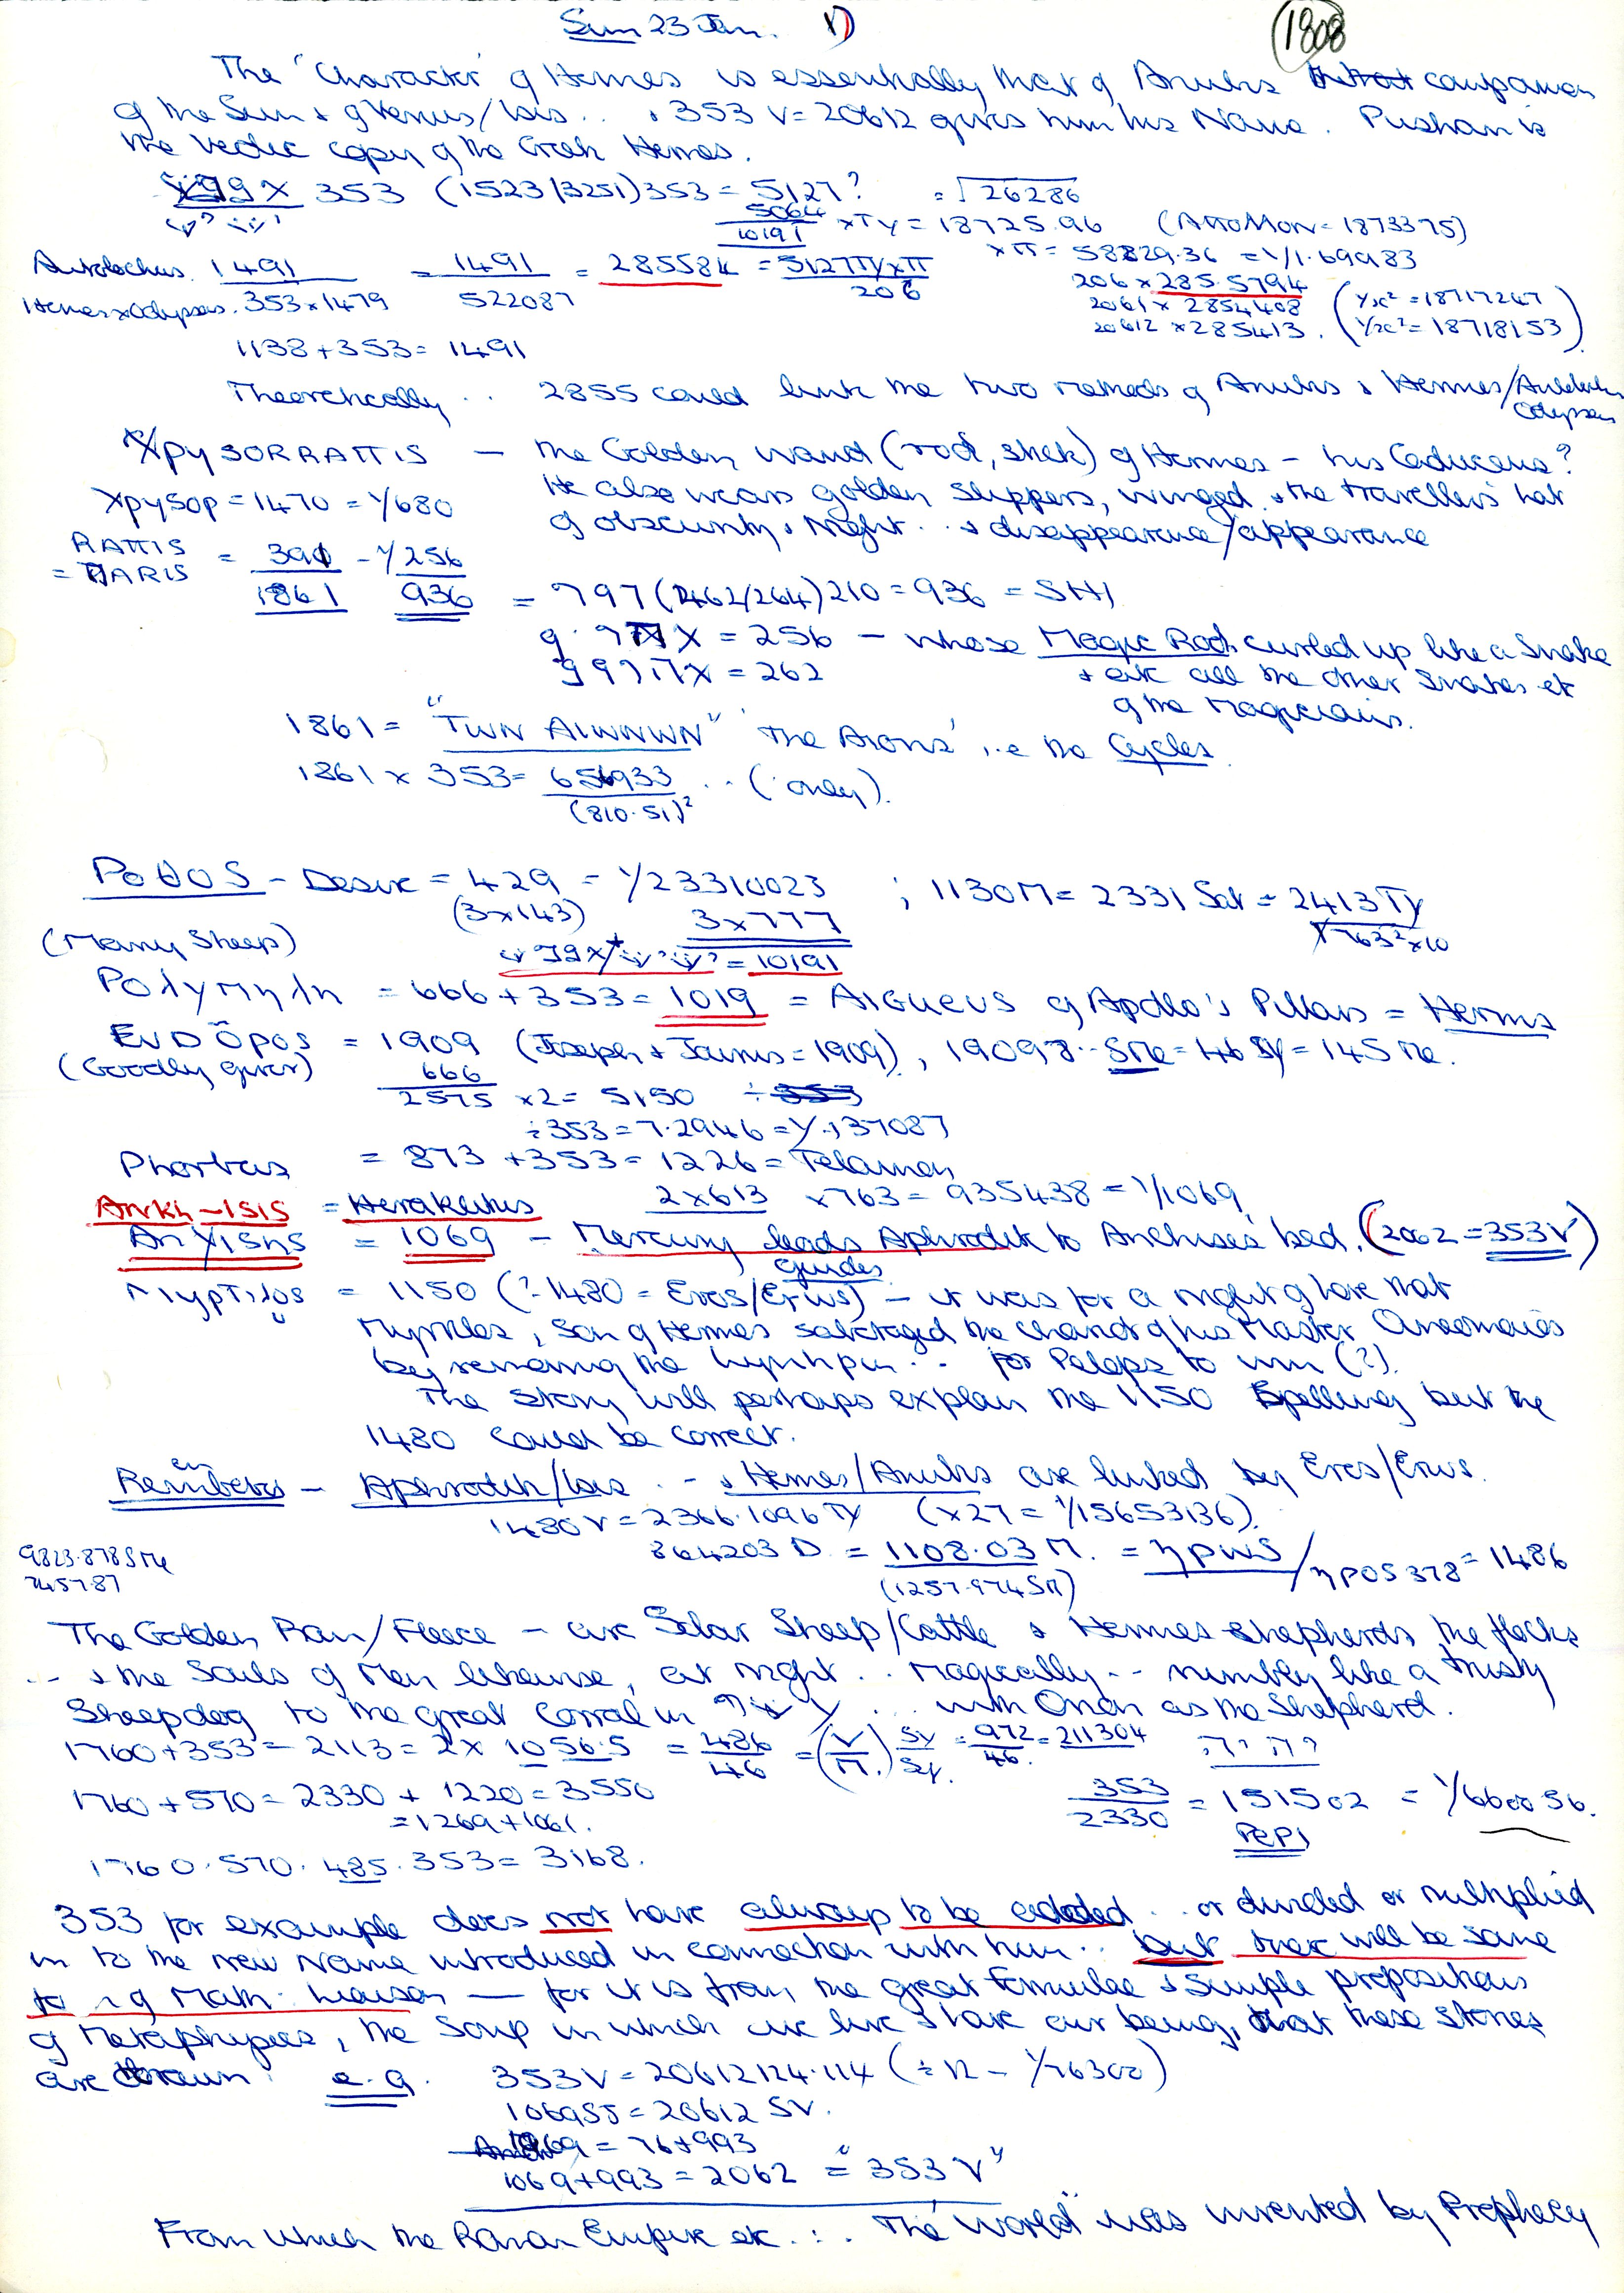 Sun 23 Jan. 1)
1808
The 'Character' of Hermes is essentially that of Anubis companion
of the Sun & of Venus/Isis.. & 353 V = 20612 gives him his Name. Pushan is
the Vedic copy of the Greek Hermes.
353 (1523/3251) 353 = 5127? = √26286
5064
10191 × Ty = 18725.96 (AttoMon = 1873375)
× π = 58829.36 = 1/1.69983
Autolochus 1491 = 1491 = 285584 = 5127 Ty × π
Hermes x Odysseus 353 × 1479 522087 206
206 × 285.5794
2061 × 2854408 (1/x² = 18717247
20612 × 285413. 1/x² = 18718153)
1138 + 353 = 1491
Theoretically .. 2855 could link the two methods of Anubis & Hermes/
Odysseus
XpySORRATTIS — the Golden wand (rod, stick) of Hermes - his Caduceus?
XpySOP = 1470 = 1/680 He also wears golden slippers, winged & the travellers hat
of obscurity & Night .. & disappearance/appearance
RATTIS = 391 - 1/256
= PARIS
1861 936 = 797 (2462/264) 210 = 936 = SHI
= 256 - whose Magic Rod curled up like a Snake
= 262 & ate all the other Snakes etc
of the Magicians.
1861 = "TWN AIWNWN" 'The Aions' i.e the Cycles.
1861 × 353 = 656933 .. (only).
(810.51)²
PoθOS - Desire = 429 = 1/23310023 ; 1130 M = 2331 Sat = 2413 Ty
(3×143) 3×777 √763² × 10
(Many Sheep) = 10191
POλyMηλη = 666 + 353 = 1019 = AIGUEUS of Apollo's Pillars = Herms
EUDωpos = 1909 (Joseph & Jaurus = 1909), 19098.. SMe = 46 Sy = 145 Me.
(Goodly giver) 666
2575 × 2 = 5150
÷ 353 = 7.2946 = 1/.137087
Phorbas = 873 + 353 = 1226 = Telamon
2×613 × 763 = 935438 = 1/1069
Ankh-ISIS = Herakleitus
AnXISηS = 1069 - Mercury leads Aphrodite to Anchises bed. (2062 = 353V)
guides
MypTiλos = 1150 (?-1480 = Eros/Erws) - it was for a night of love that
Myrtilos, Son of Hermes sabotaged the chariot of his Master Oinomaios
by removing the lynchpin .. for Pelops to win (?).
The story will perhaps explain the 1150 Spelling but the
1480 could be correct.
Remember - Aphrodite/Isis .. & Hermes/Anubis are linked by Eros/Erws.
1480 V = 2366.1096 Ty (×27 = 1/15653136).
864203 D. = 1108.03 M. = ηpWS / ηpOS 378 = 1486
(1257.974 SM)
9823.878 SMe
7457.87
The Golden Ram/Fleece - are Solar Sheep/Cattle & Hermes Shepherds the flocks
.. & the Souls of Men likewise, at night .. Magically .. nimbly like a trusty
Sheepdog to the great Corral in .. with Orion as the Shepherd.
1760 + 353 = 2113 = 2 × 1056.5 = 486/46 = (V/M.) Sy/Sy. = 972/46. = 211304
1760 + 570 = 2330 + 1220 = 3550 353/2330 = 151502 = 1/660056.
= 1269 + 1061. PEPI
1760.570.485.353 = 3168.
353 for example does not have always to be added .. or divided or multiplied
in to the new Name introduced in connection with him .. but there will be some
of Math. Liaison — for it is from the great formulae & simple propositions
of Metaphysics, the Soup in which we live & have our being, that these stories
are drawn. e.g. 353V = 20612124.114 (÷ 12 - 1/76300)
1069SJ = 20612 SV.
1069 = 76 + 993
1069 + 993 = 2062 = "353 V"
From which the Roman Empire etc. ∴. "The World" was invented by Prophecy